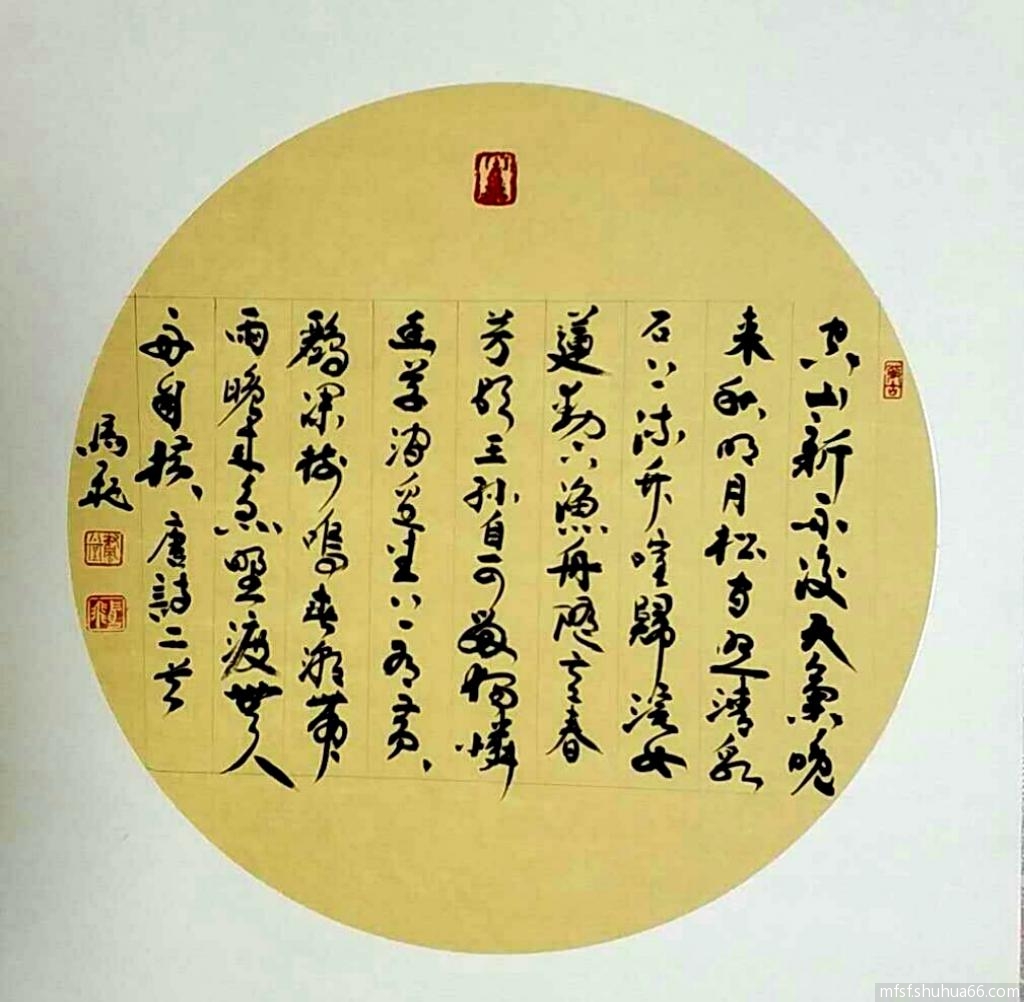 空山新雨後天氣晚
来秋明月松间照清泉
石上流竹喧歸浣女
蓮動下漁舟隨意春
芳歇王孫自可留獨憐
幽草澗邊生上有黄、
鸝深樹鳴春潮帶
雨晚来急野渡無人
舟自横、唐詩二首
馬飛
mfsfshuhua66.com